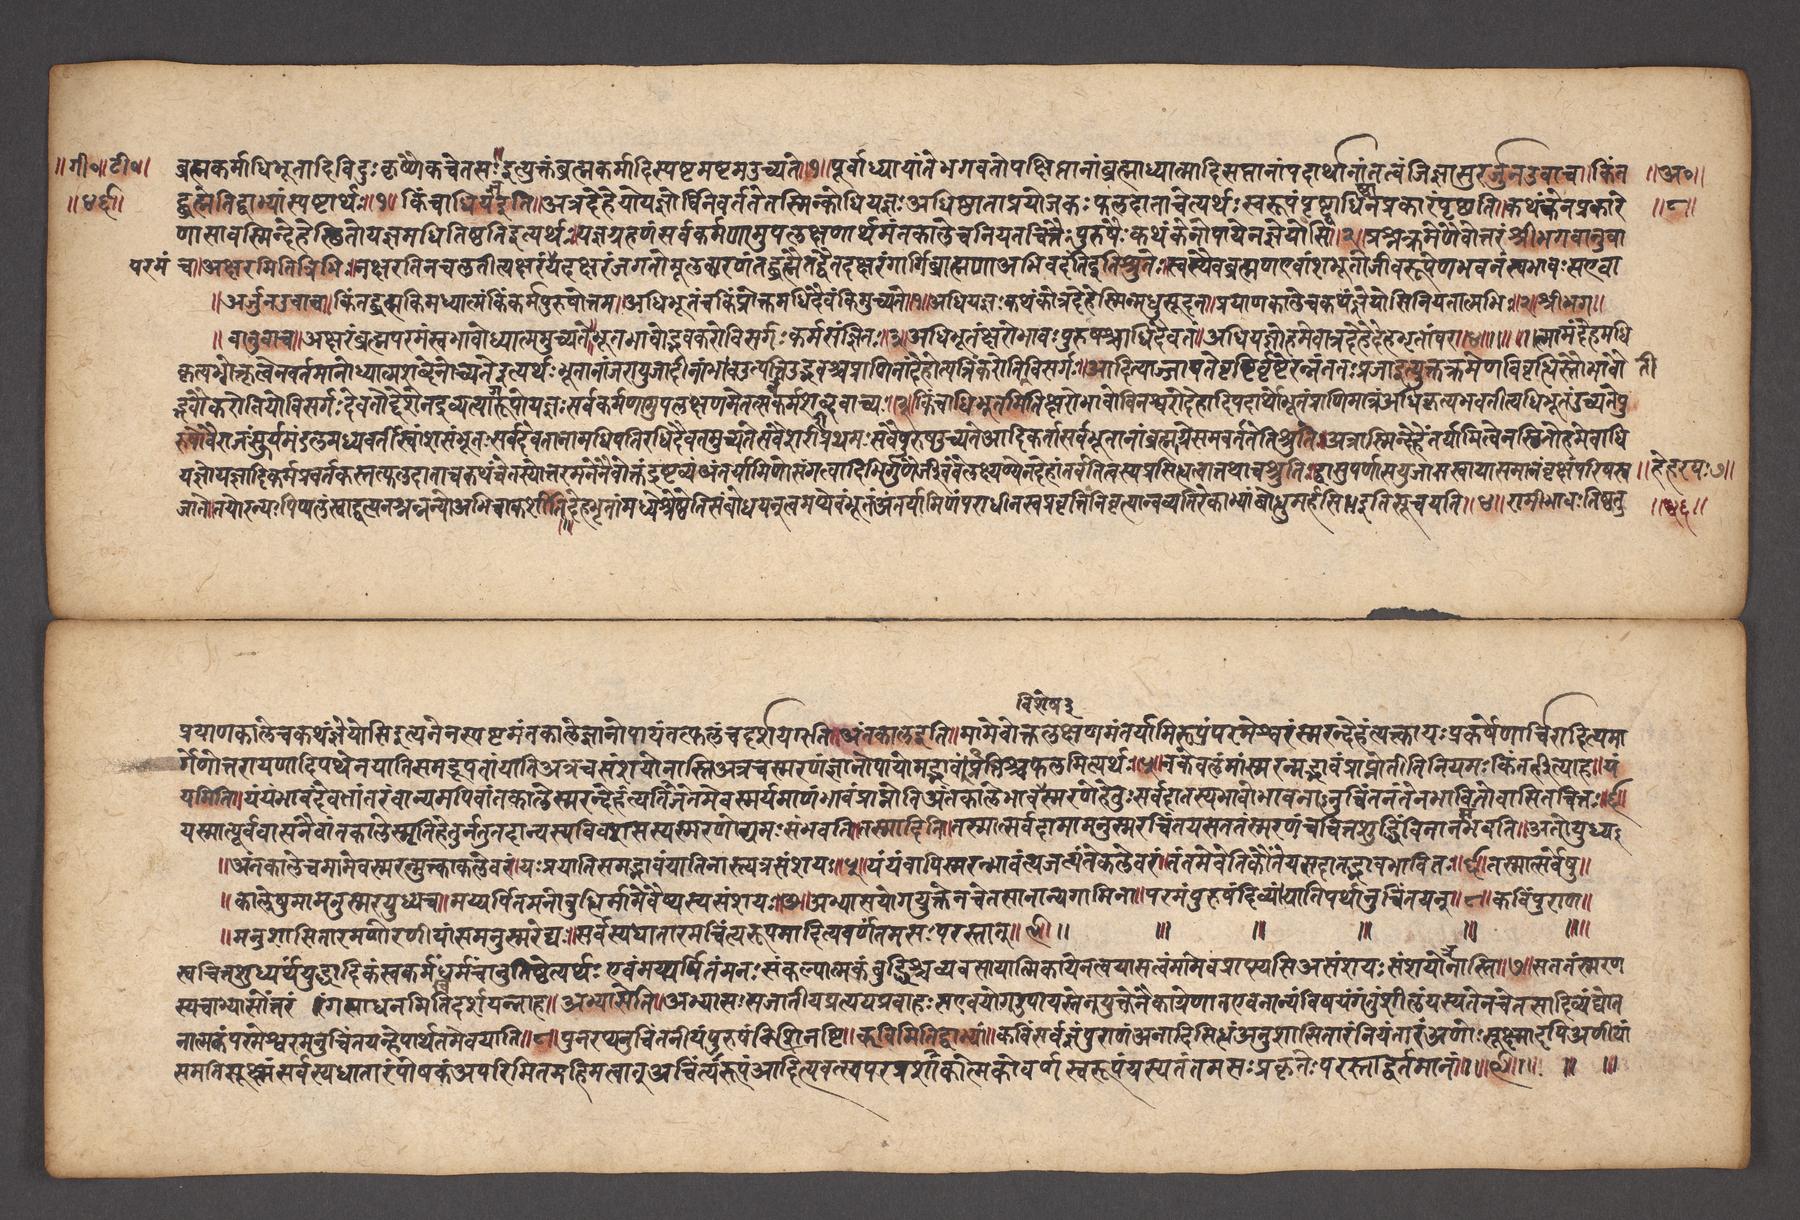 ॥गी०॥टी०॥ ब्रह्मकर्माधिभूतादिविदुःकृष्णैकचेतसः॥इत्युक्तंब्रह्मकर्मादिस्पष्टमष्टमउच्यते॥१॥पूर्वाध्यायांतेभगवतोपक्षिप्तानांब्रह्माध्यात्मादिसप्तानांपदार्थानांतत्वंजिज्ञासुरर्जुनउवाच॥किंत ॥अ०॥
॥४६॥ द्ब्रह्मेतिद्वाभ्यांस्पष्टार्थः॥१॥ किंचाधियज्ञइति॥अत्रदेहेयोयज्ञोवर्ततेतस्मिन्कोधियज्ञःअधिष्ठाताप्रयोजकःफलदाताचेत्यर्थःस्वरूपंपृष्ट्वाधिष्ठानप्रकारंपृच्छति॥कथंकेनप्रकारे ॥८॥
णासावस्मिन्देहेस्थितोयज्ञमधितिष्ठतिइत्यर्थः॥यज्ञग्रहणंसर्वकर्मणामुपलक्षणार्थमंतकालेचनियतचित्तैःपुरुषैःकथंकेनोपायेनज्ञेयोसि॥२॥प्रश्नक्रमेणैवोत्तरंश्रीभगवानुवा
परमं च॥अक्षरमितित्रिभिः॥नक्षरतिनचलतीत्यक्षरंयदक्षरंजगतोमूलकारणंतद्ब्रह्मेतद्वैतदक्षरंगार्गिब्राह्मणाअभिवदंतिइतिश्रुतेः॥स्वस्यैवब्रह्मणएवांशभूतोजीवरूपेणभवनंस्वभावःसएवा
॥अर्जुनउवाच॥किंतद्ब्रह्मकिमध्यात्मंकिंकर्मपुरुषोत्तम॥अधिभूतंचकिंप्रोक्तमधिदैवंकिमुच्यते॥१॥अधियज्ञःकथंकोत्रदेहेस्मिन्मधुसूदन॥प्रयाणकालेचकथंज्ञेयोसिनियतात्मभिः॥२॥श्रीभग॥
॥वानुवाच॥अक्षरंब्रह्मपरमंस्वभावोध्यात्ममुच्यते॥भूतभावोद्भवकरोविसर्गःकर्मसंज्ञितः॥३॥अधिभूतंक्षरोभावःपुरुषश्चाधिदैवतं॥अधियज्ञोहमेवात्रदेहेदेहभृतांवर॥४॥॥॥त्मानंदेहमधि
कृत्यभोक्तृत्वेनवर्तमानोध्यात्मशब्देनोच्यतेइत्यर्थःभूतानांजरायुजादीनांभावउत्पत्तिउद्भवश्च आदित्याज्जायतेवृष्टिर्वृष्टेरन्नंततःप्रजाइत्युक्तक्रमेणविवृद्धिस्तौभावो तौ
द्भवौकरोतियोविसर्गःदेवतोद्देशेनद्रव्यत्यागरूपोयज्ञःसर्वकर्मणामुपलक्षणमेतत्सकर्मशब्दवाच्यः॥३॥किंचाधिभूतमितिक्षरोभावोविनश्वरोदेहादिपदार्थोभूतंप्राणिमात्रंअधिकृत्यभवतीत्यधिभूतमुच्यतेपु
रुषोवैराजःसूर्यमंडलमध्यवर्तीस्वांशसंभूतःसर्वदेवतानामधिपतिरधिदैवतमुच्यतेसवैशरीरीप्रथमःसवैपुरुषउच्यतेआदिकर्तासभूतानांब्रह्माग्रेसमवर्ततेतिश्रुतेः॥अत्रास्मिन्देहेंतर्यामित्वेनस्थितोहमेवाधि
यज्ञोयज्ञादिकर्मप्रवर्तकस्तत्फलदाताच द्वासुपर्णासयुजासखायासमानंवृक्षंपरिषस्व ॥हेहरयः७॥
जाते॥तयोरन्यःपिप्पलंस्वाद्वत्त्यनश्नन्नन्योअभिचाकशीति देहभृतांमध्येश्रेष्ठेतिसंबोधयन् बोद्धुमर्हसीतिसूचयति॥४॥ ॥४६॥
विशेषइ
प्रयाणकालेचकथंज्ञेयोसिइत्यनेनस्पृष्टमंतकालेज्ञानोपायंतत्फलंचदर्शयति॥अंतकालइति॥मामेवोक्तलक्षणमंतर्यामिरूपंपरमेश्वरंस्मरन्देहंत्यक्त्वायःप्रकर्षेणार्चिरादित्यमा
र्गेणोत्तरायणादिपथेनयातिसमद्रूपतांयातिअत्रचसंशयोनास्तिअत्रचस्मरणंज्ञानोपायोमद्भावप्राप्तिश्चफलमित्यर्थः॥५॥नकेवलंमांस्मरन्मद्भावंप्राप्नोतीतिनियमःकिंतर्हीत्याह॥यं
यमिति॥यंयंभावंदेवतांतरंवान्यमपिवांतकालेस्मरन्देहंत्यजतितंतमेवस्मर्यमाणंभावंप्राप्नोतिअंतकालेभावस्मरणेहेतुःसर्वदातस्यभावोभावनानुचिंतनंतेनभावितोवासितचित्तः॥६॥
यस्मात्पूर्ववासनैवांतकालेस्मृतिहेतुर्नतु संभवति॥तस्मादिति॥तस्मात्सर्वदामामनुस्मरचिंतयसततंस्मरणंचचित्तशुद्धिंविनानभवति॥अतोयुध्य
॥अंतकालेचमामेवस्मरन्मुक्त्वाकलेवरं॥यःप्रयातिसमद्भावंयातिनास्त्यत्रसंशयः॥५॥यंयंवापिस्मरन्भावंत्यजत्यंतेकलेवरं॥तंतमेवैतिकौंतेयसदातद्भावभावितः॥६॥तस्मात्सर्वेषु॥
॥कालेषुमामनुस्मरयुध्यच॥मय्यर्पितमनोबुद्धिर्मामेवैष्यस्यसंशयः॥७॥अभ्यासयोगयुक्तेनचेतसानान्यगामिना॥परमंपुरुषंदिव्यंयातिपार्थानुचिंतयन्॥८॥कविंपुराण॥
॥मनुशासितारमणोरणीयांसमनुस्मरेद्यः॥सर्वस्यधातारमचिंत्यरूपमादित्यवर्णंतमसःपरस्तात्॥९॥॥ ॥ ॥ ॥ ॥ ॥
स्वचित्तशुध्यर्थंयुद्धादिकंस्वकर्मधर्मंचानुतिष्ठेत्यर्थःएवंमय्यर्पितंमनःसंकल्पात्मकंबुद्धिश्चव्यवसायात्मिकायेनत्वयासत्वंमामेवप्राप्स्यसिअसंशयःसंशयोनास्ति॥७॥सततंस्मरण
स्यचाभ्यासोंतरंगसाधनमितिदर्शयन्नाह॥अभ्यासेति॥अभ्यासःसजातीयप्रत्ययप्रवाहःसएवयोगउपायस्तेनयुक्तेनैकाग्रेणातएवनान्यंविषयंगंतुंशीलंयस्यतेनचेतसादिव्यंद्योत
नात्मकंपरमेश्वरमनुचिंतयन्हेपार्थतमेवयाति॥८॥पुनरप्यनुचिंतनीयंपुरुषंविशिनष्टि॥कविमितिद्वाभ्यां॥कविंसर्वज्ञंपुराणंअनादिसिद्धंअनुशासितारंनियंतारंअणोःसूक्ष्मादपिअणीयां
समतिसूक्ष्मंसर्वस्यधातारंपोषकंअपरिमितमहिमत्वात्अचिंत्यरूपंआदित्यवत्स्वपरप्रकाशात्मकोवर्णस्वरूपंयस्यतंतमसःप्रकृतेःपरस्ताद्वर्तमानं॥९॥ ॥ ॥